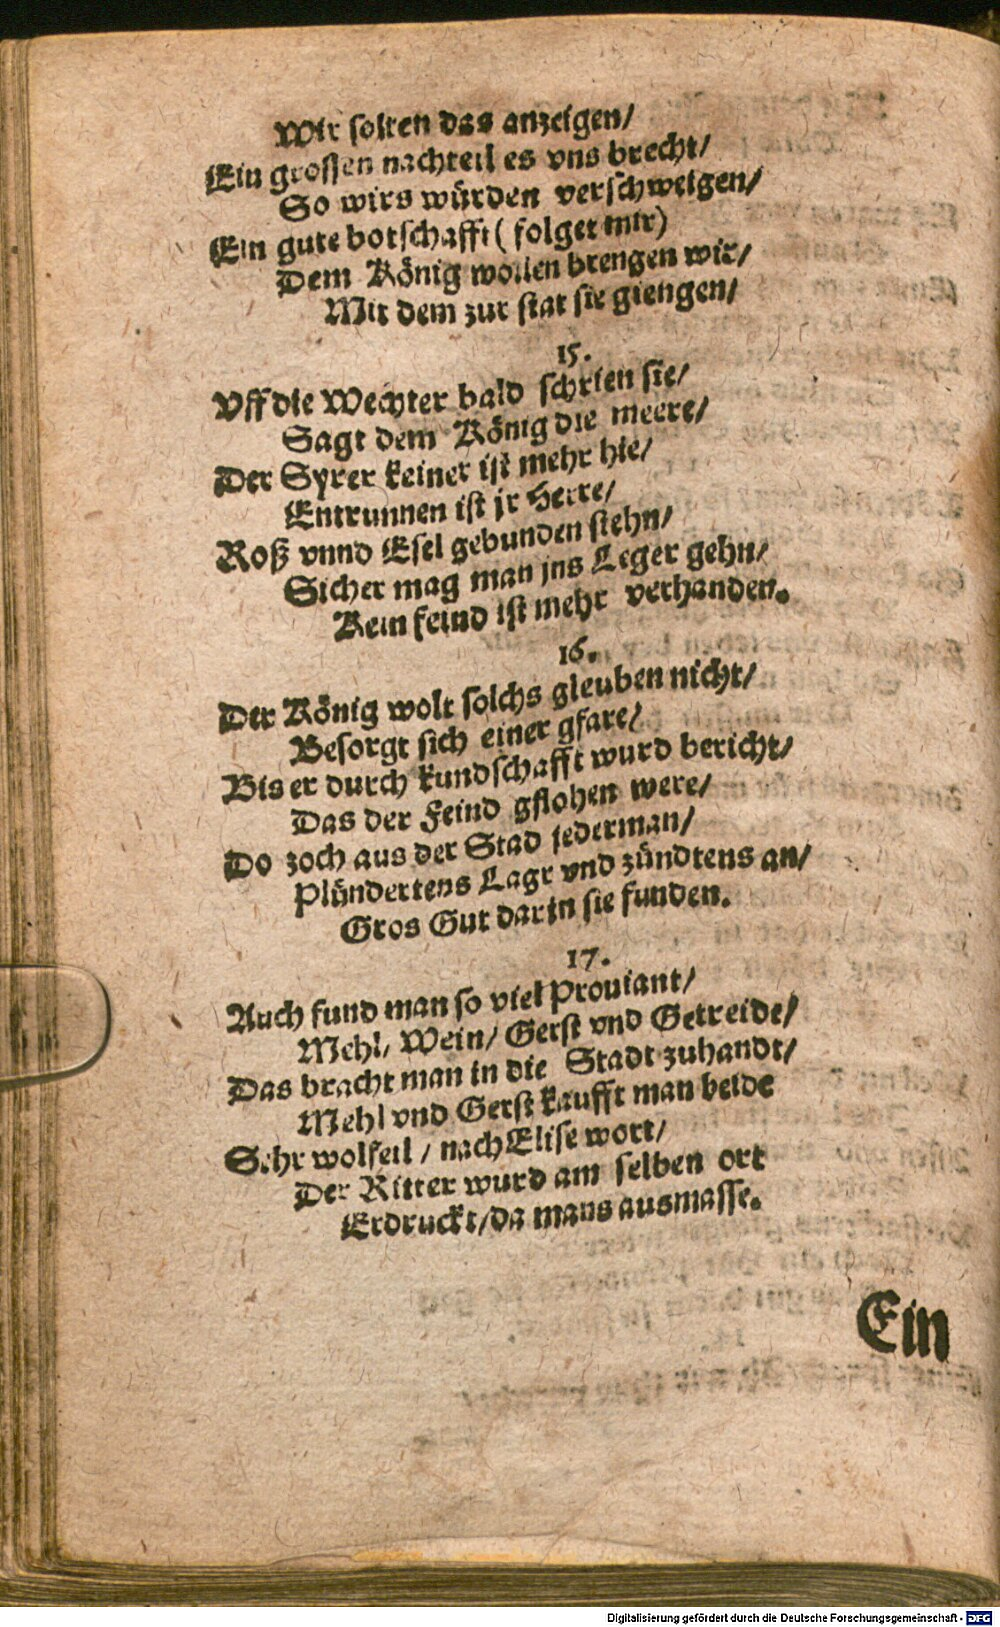 Wir solten das anzeigen/
Ein grossen nachteil es vns brecht/
So wirs würden verschweigen/
Ein gute botschafft (folget mir)
Dem König wollen brengen wir/
Mit dem zur stat sie giengen/
15.
Vff die Wechter bald schrien sie/
Sagt dem König die meere/
Der Syrer keiner ist mehr hie/
Entrunnen ist jr Herre/
Roß vnnd Esel gebunden stehn/
Sicher mag man jns Leger gehn/
Kein feind ist mehr verhanden.
16.
Der König wolt solchs gleuben nicht/
Besorgt sich einer gfare/
Bis er durch kundschafft wurd bericht/
Das der Feind gflohen were/
Do zoch aus der Stad jederman/
Plündertens Lagr vnd zündtens an/
Gros Gut darin sie funden.
17.
Auch fund man so viel Prouiant/
Mehl/ Wein/ Gerst vnd Getreide/
Das bracht man in die Stadt zuhandt/
Mehl vnd Gerst kaufft man beide
Sehr wolfeil/ nach Elise wort/
Der Ritter wurd am selben ort
Erdruckt/da mans ausmasse.
Ein
Digitalisierung gefördert durch die Deutsche Forschungsgemeinschaft - DFG